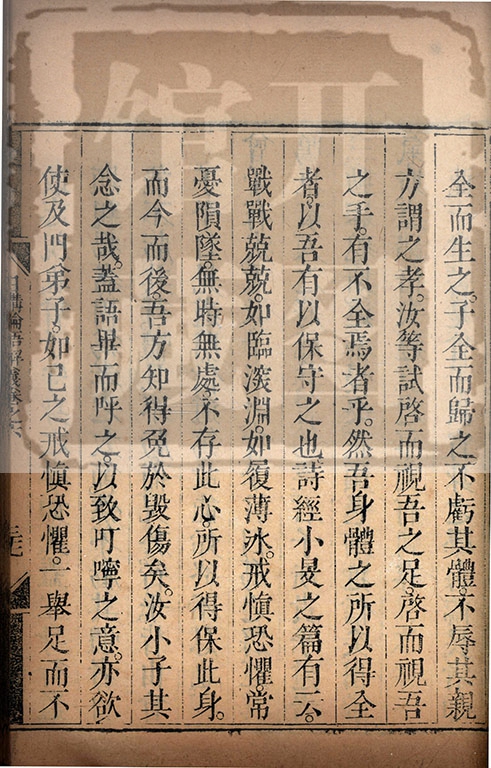 全而生之。子全而歸之不虧其體。不辱其親
方謂之孝。汝等試啓而視吾之足。啓而視吾
之手。有不全焉者乎。然吾身體之所以得全
者。以吾有以保守之也詩經小旻之篇有云。
戰戰兢兢。如臨深淵。如履薄冰。戒慎恐懼。常
憂隕墜。無時無處。不存此心。所以得保此身。
而今而後。吾方知得免於毀傷矣。汝小子其
念之哉。蓋語畢而呼之。以致叮嚀之意。亦欲
使及門弟子。如己之戒慎恐懼。一舉足而不